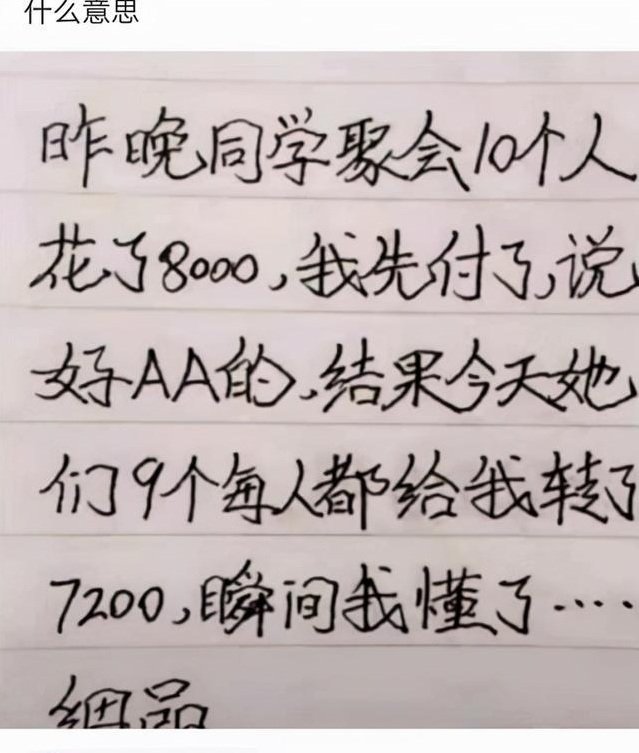 什么意思
昨晚同学聚会10个人
花了8000,我先付了,说
好AA的,结果今天她
们9个每人都给我转了
7200,瞬间我懂了····
细品